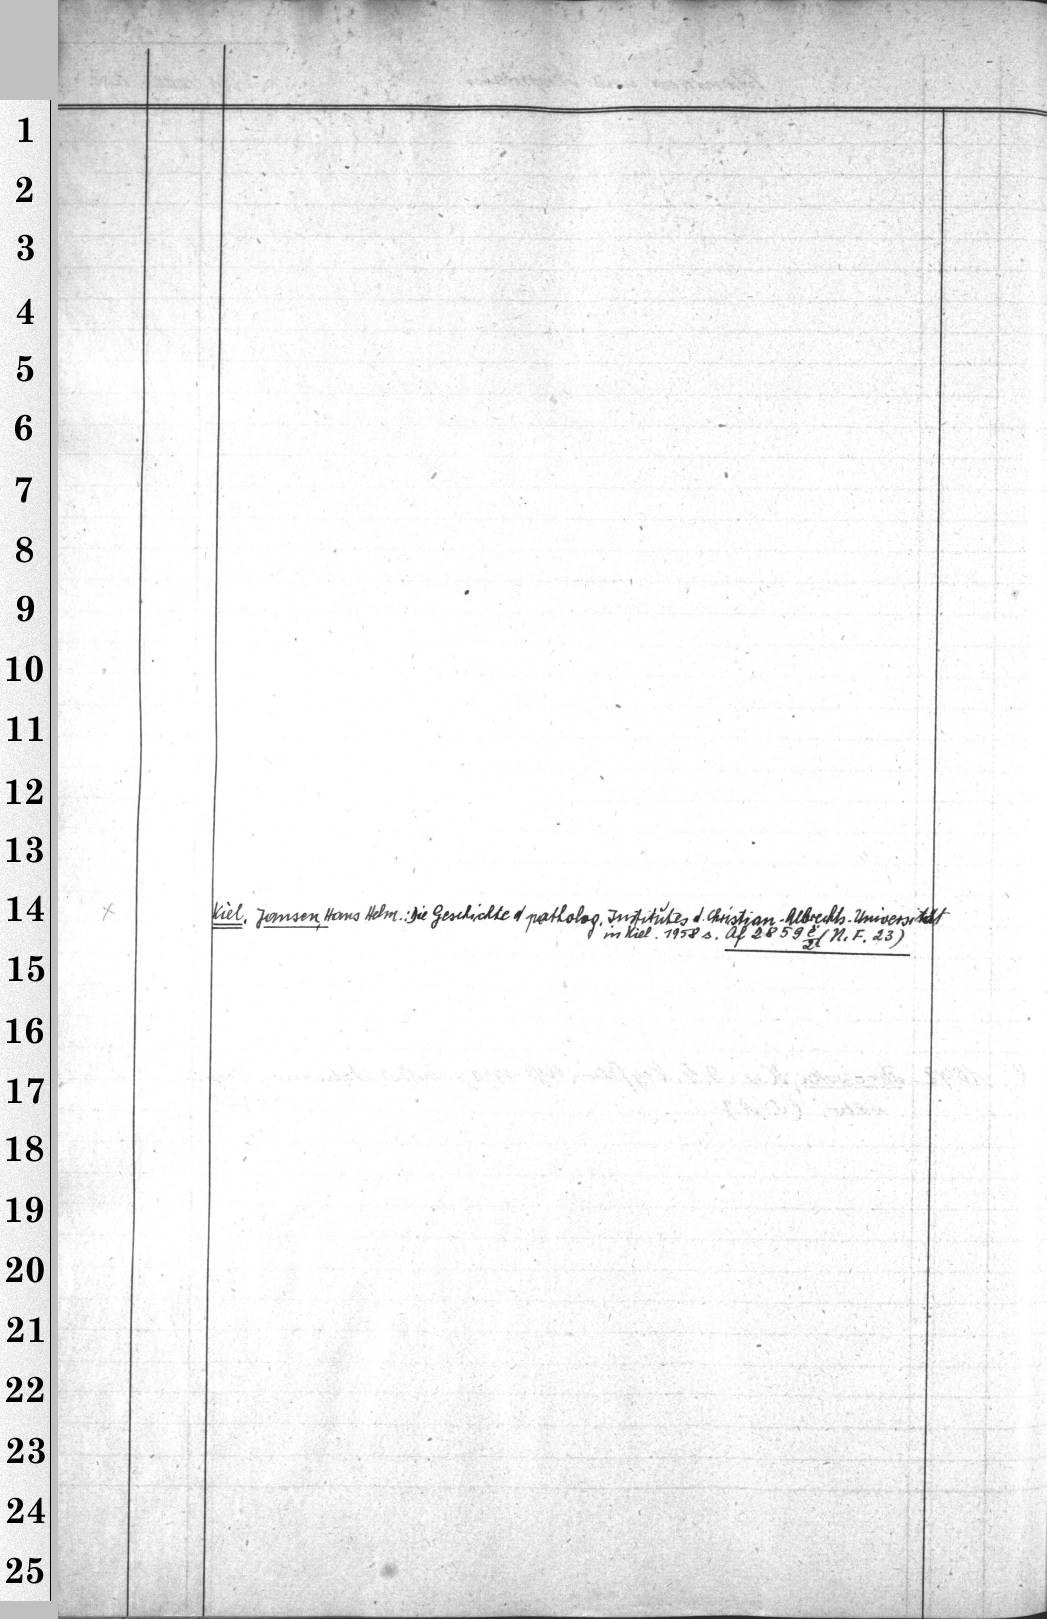 1
2
3
4
5
6
7
8
9
10
11
12
13
14
Kiel. Jansen, Hans Helm.: Die Geschichte d patholog. Institutes d. Christian-Albrechts-Universität
in Kiel. 1958 s. Af 2859 (N.F. 23)
15
16
17
18
19
20
21
22
23
24
25